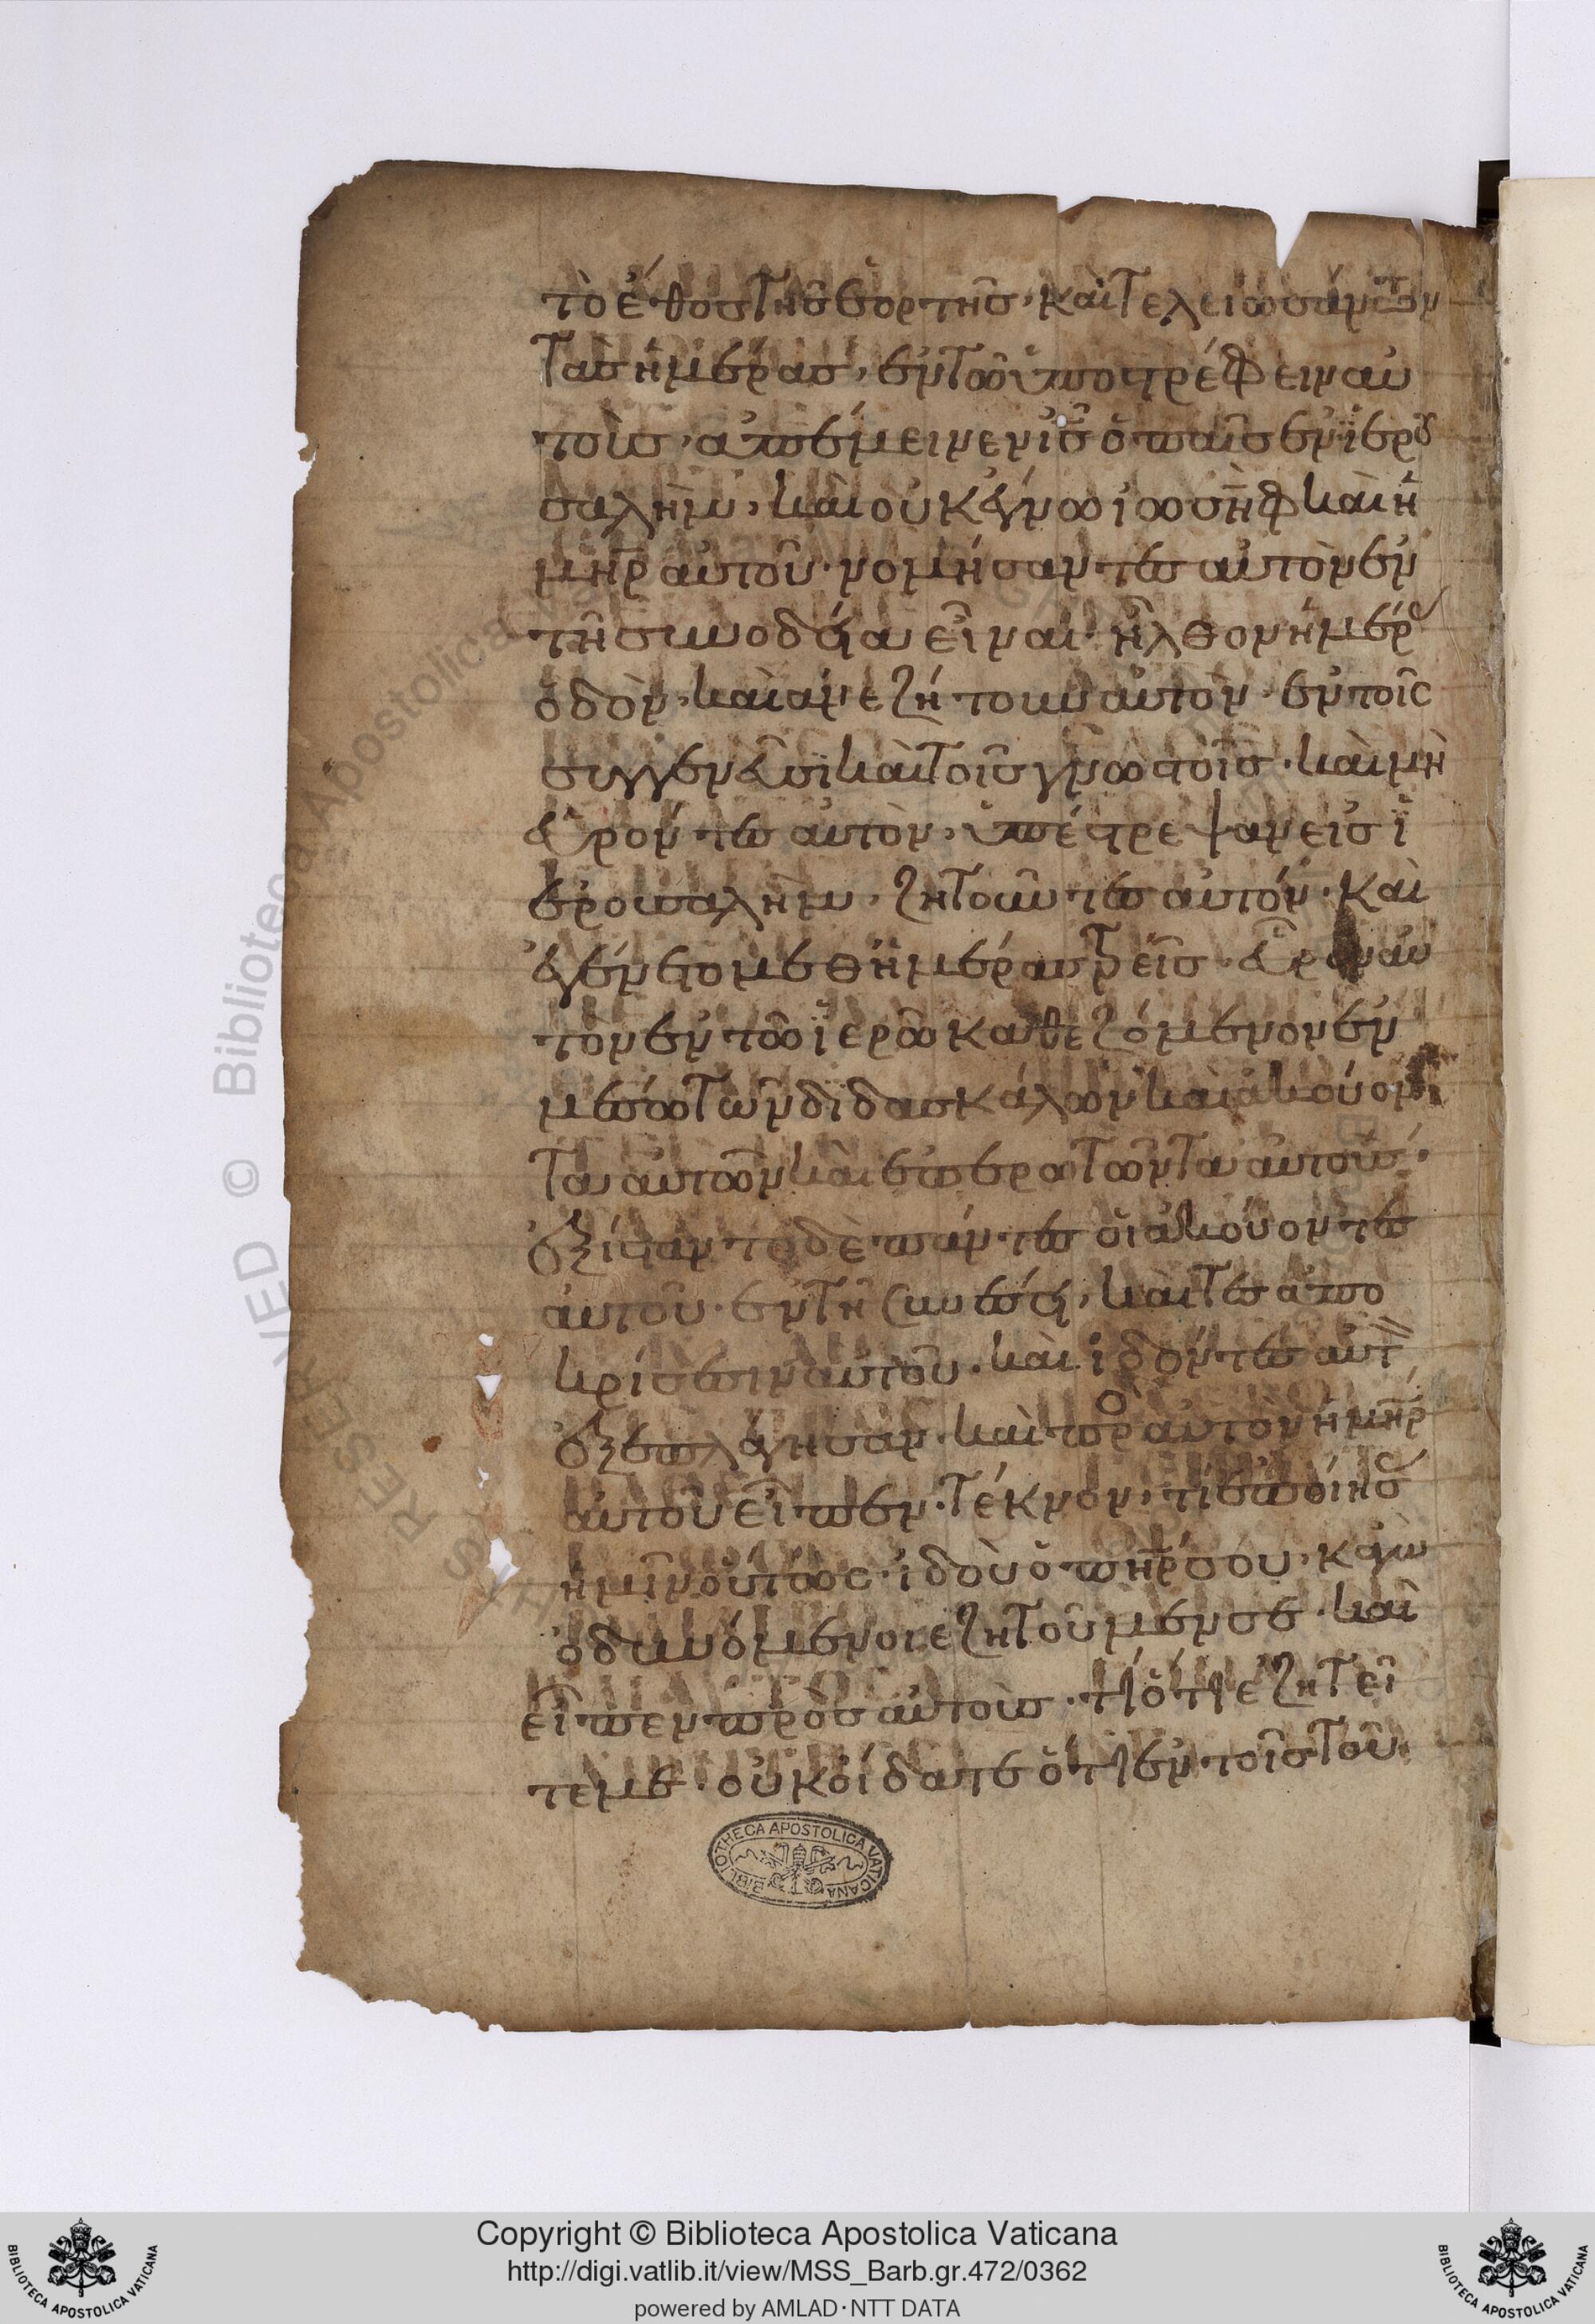 τὸ ἔθος τῆς ἑορτῆς· καὶ τελειωσάντων
τὰς ἡμέρας, ἐν τῷ ὑποστρέφειν αὐ
τοὺς, ἀπέμεινεν ἰς ὁ παῖς ἐν ἱερου
σαλὴμ, καὶ οὐκ ἔγνω ἰωσὴφ καὶ ἡ
μηρ αὐτοῦ· νομήσαντες αὐτὸν ἐν
τῇ συνοδία εἶναι· ἦλθον ἡμέρ
ὁδὸν, καὶ ἀνεζήτουν αὐτὸν· ἐν τοῖς
συγγενεῦσι καὶ τοῖς γνωστοῖς· καὶ μὴ
εὑρόντες αὐτὸν, ὑπέστρεψαν εἰς ἱ
ερουσαλὴμ, ζητοῦντες αὐτόν· καὶ
ἐγένετο μεθ ἡμέρας τρεῖς· εὗρον αὐ
τὸν ἐν τῷ ἱερῷ καθεζόμενον ἐν
μέσω τῶν διδασκάλων καὶ ἀκούον
τα αὐτῶν καὶ ἐπερωτῶντα αὐτούς·
ἐξίσταντο δὲ πάντες οἱ ἀκούοντες
αὐτοῦ· ἐν τῇ συνέσει, καὶ τες ἀπο
κρίσεσιν αὐτοῦ· καὶ ἰδόντες αὐτ
ἐξεπλάγησαν· καὶ προ αὐτὸν ἡ μηρ
αὐτοῦ εἶπεν· τέκνον, τί ἐποίησ
ἡμῖν οὕτως· ἰδοὺ ὁ πηρ σου· κἀγὼ
ὀδυνόμενοι ἐζητοῦμέν σε· καὶ
εἶπεν πρὸς αὐτοὺς· τί ὅτι ἐζητεῖ
τέ με· οὐκ οἴδατε ὅτι ἐν τοῖς τοῦ
BIBLIOTHECA APOSTOLICA VATICANA
Copyright © Biblioteca Apostolica Vaticana
http://digi.vatlib.it/view/MSS_Barb.gr.472/0362
powered by AMLAD·NTT DATA
BIBLIOTECA APOSTOLICA VATICANA
BIBLIOTECA APOSTOLICA VATICANA